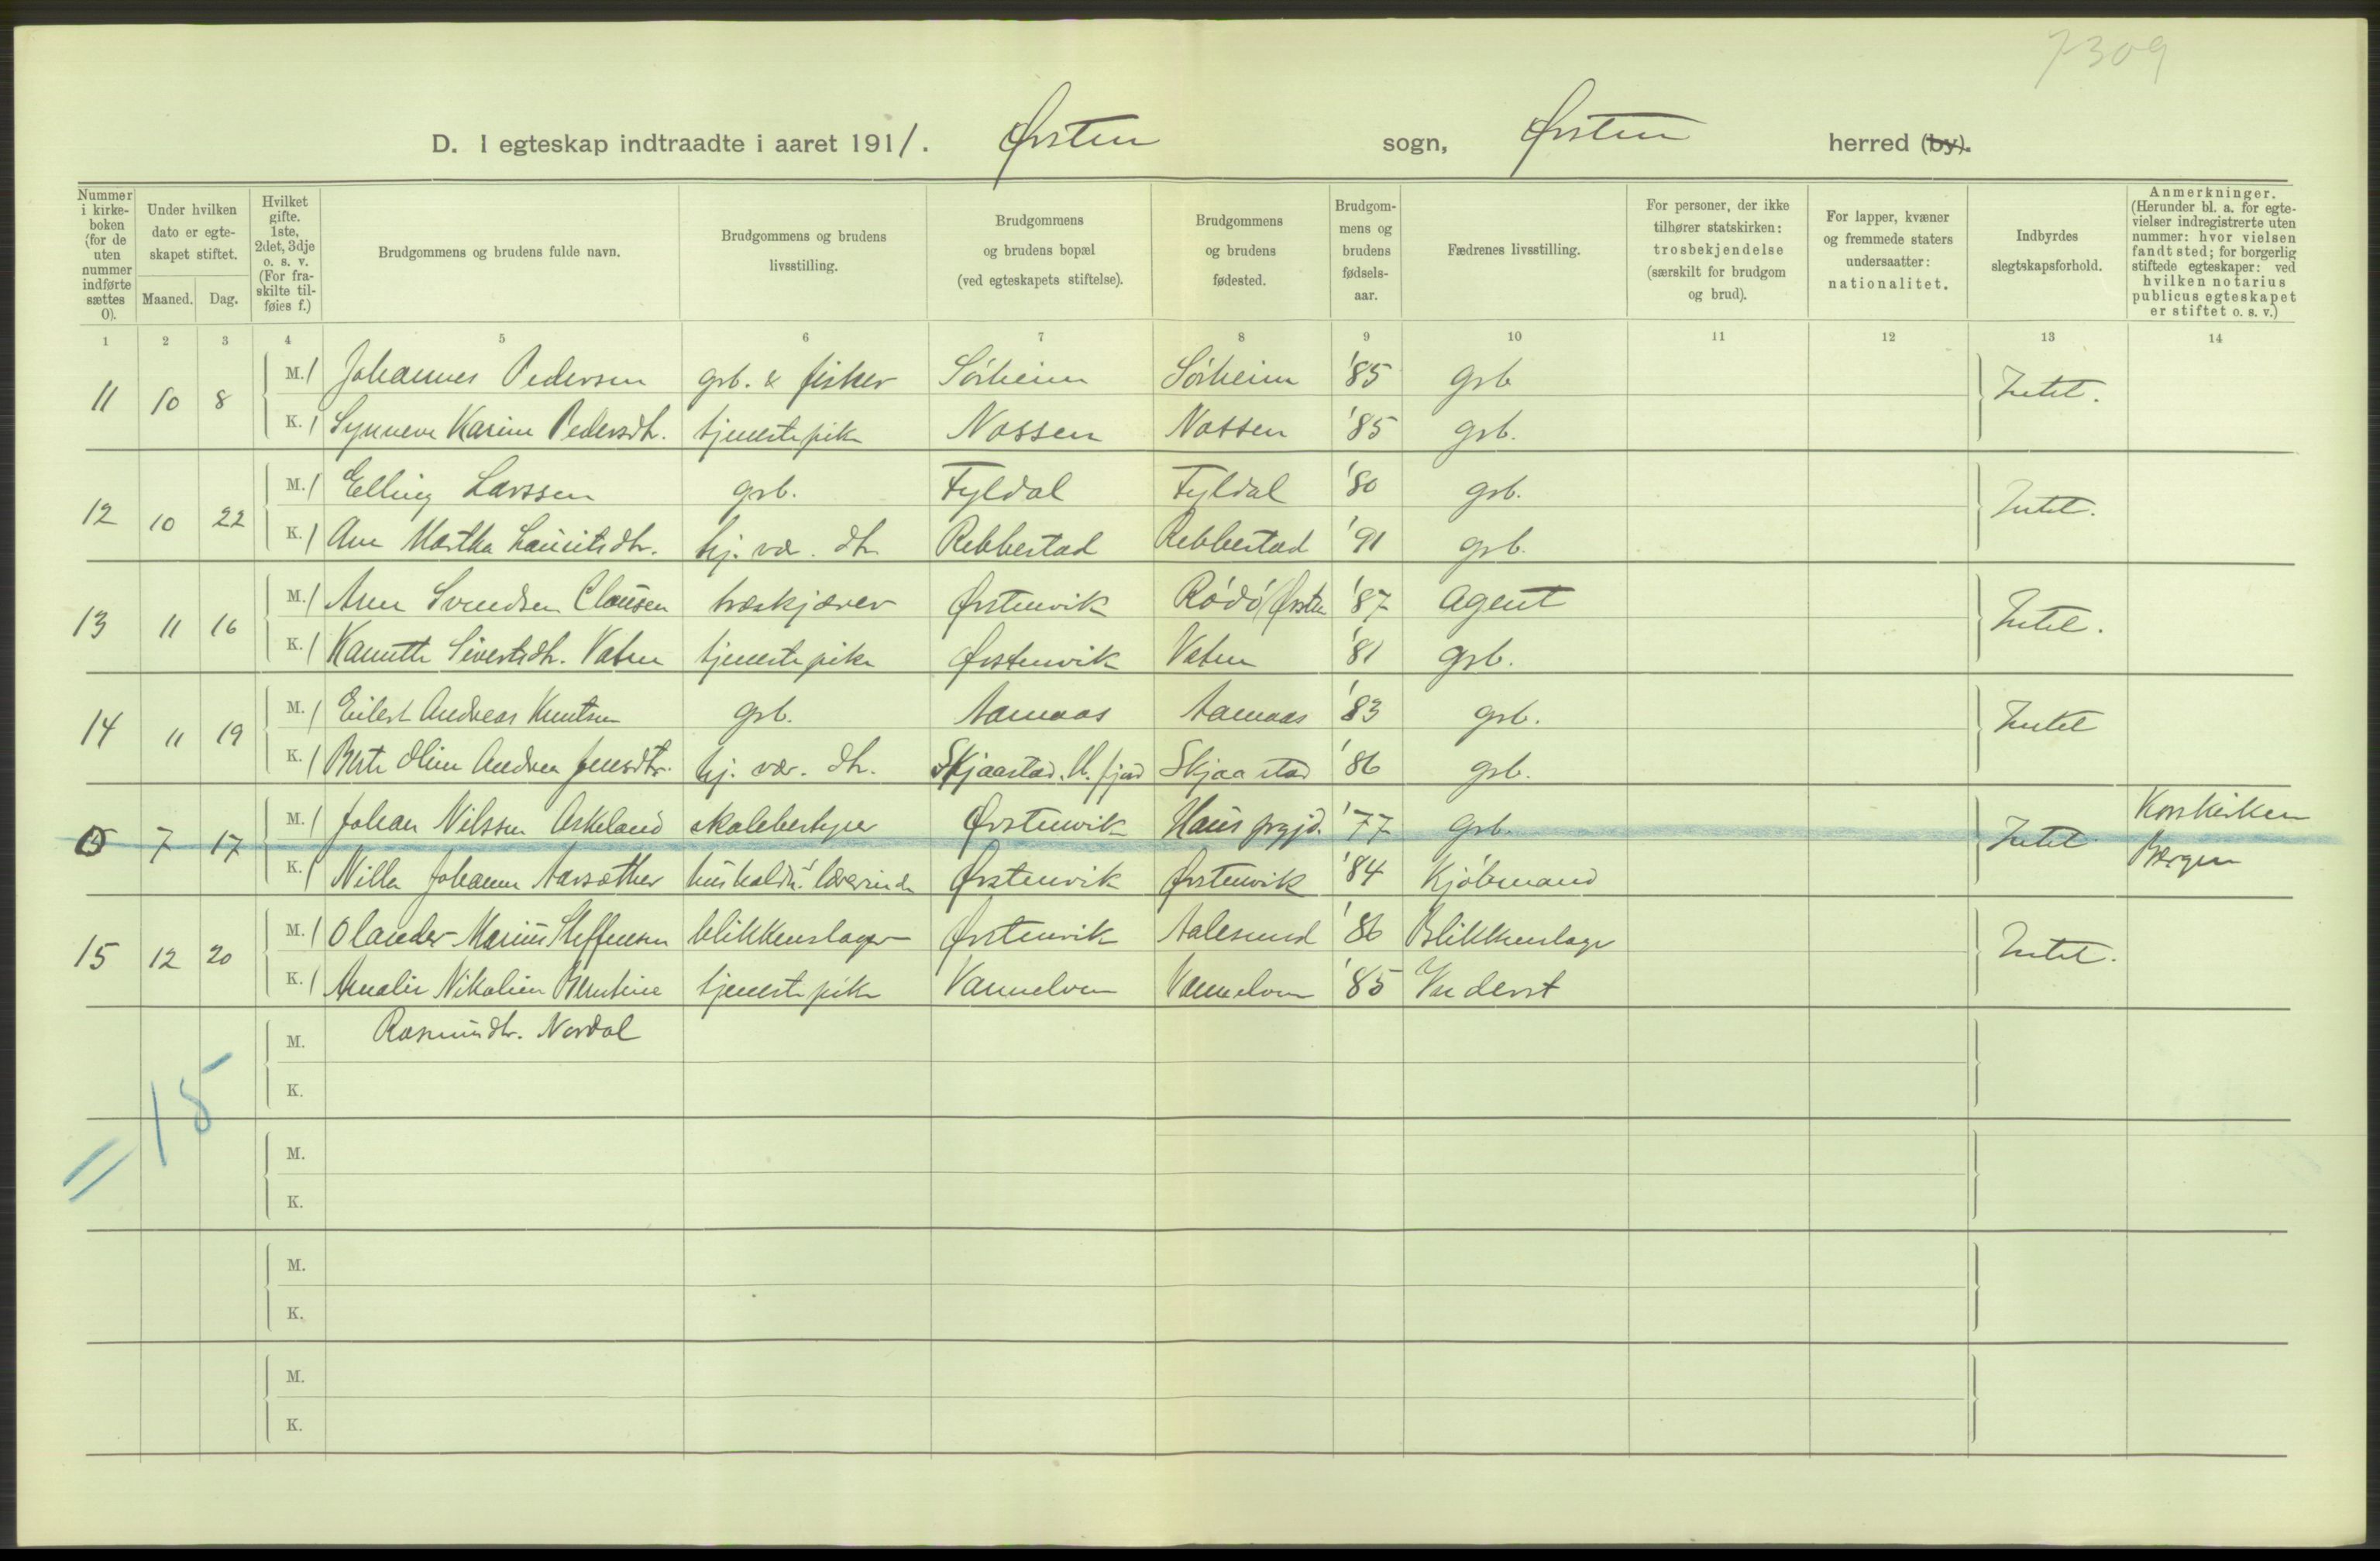 7309
D. I egteskap indtraadte i aaret 1911. Ørsten sogn, Ørsten herred (by).
Nummer i kirke-boken (for de uten nummer indførte sættes 0).
Under hvilken dato er egte-skapet stiftet.
Maaned. Dag.
Hvilket gifte. 1ste, 2det, 3dje o. s. v. (For fra-skilte til-føies f.)
Brudgommens og brudens fulde navn.
Brudgommens og brudens livsstilling.
Brudgommens og brudens bopæl (ved egteskapets stiftelse).
Brudgommens og brudens fødested.
Brudgom-mens og brudens fødsels-aar.
Fædrenes livsstilling.
For personer, der ikke tilhører statskirken: trosbekjendelse (særskilt for brudgom og brud).
For lapper, kvæner og fremmede staters undersaatter: nationalitet.
Indbyrdes slegtskapsforhold.
Anmerkninger. (Herunder bl. a. for egte-vielser indregistrerte uten nummer: hvor vielsen fandt sted; for borgerlig stiftede egteskaper: ved hvilken notarius publicus egteskapet er stiftet o. s. v.)
1 2 3 4 5 6 7 8 9 10 11 12 13 14
11 10 8 M. 1 Johannes Pedersen grb. & fisker Sørheim Sørheim '85 grb Intet.
K. 1 Synneve Karine Pedersdtr. tjenestepike Nossen Nossen '85 grb.
12 10 22 M. 1 Elling Larssen grb. Fyldal Fyldal '80 grb. Intet.
K. 1 Ane Martha Lauritsdtr. hj. vær. dtr Rebbestad Rebbestad '91 grb.
13 11 16 M. 1 Arne Svendsen Clausen træskjærer Ørstenvik Rödö (Ørsten '87 Agent Intet.
K. 1 Kanutte Sivertsdtr. Vatne tjenestepike Ørstenvik Vatne '81 grb.
14 11 19 M. 1 Eilert Andreas Knutsen grb. Aamaas Aamaas '83 grb. Intet
K. 1 Berte Oline Andrea Jensdtr. hj. vær. dtr. Skjaastad, H. fjord Skjaastad '86 grb.
0 7 17 M. 1 Johan Nilssen Askeland skolebestyrer Ørstenvik Haus prgjd. '77 grb. Intet Korskirken
K. 1 Nilla Johanne Aarsæther husholdn. lærerinde Ørstenvik Ørstenvik '84 Kjøbmand Bergen
15 12 20 M. 1 Olander Marius Steffensen blikkenslager Ørstenvik Aalesund '86 Blikkenslager Intet.
K. 1 Amalie Nikoline Berntine tjenestepike Vannelven Vannelven '85 Inderst
M. Rasmusdtr. Nordal
K.
= 15
M.
K.
M.
K.
M.
K.